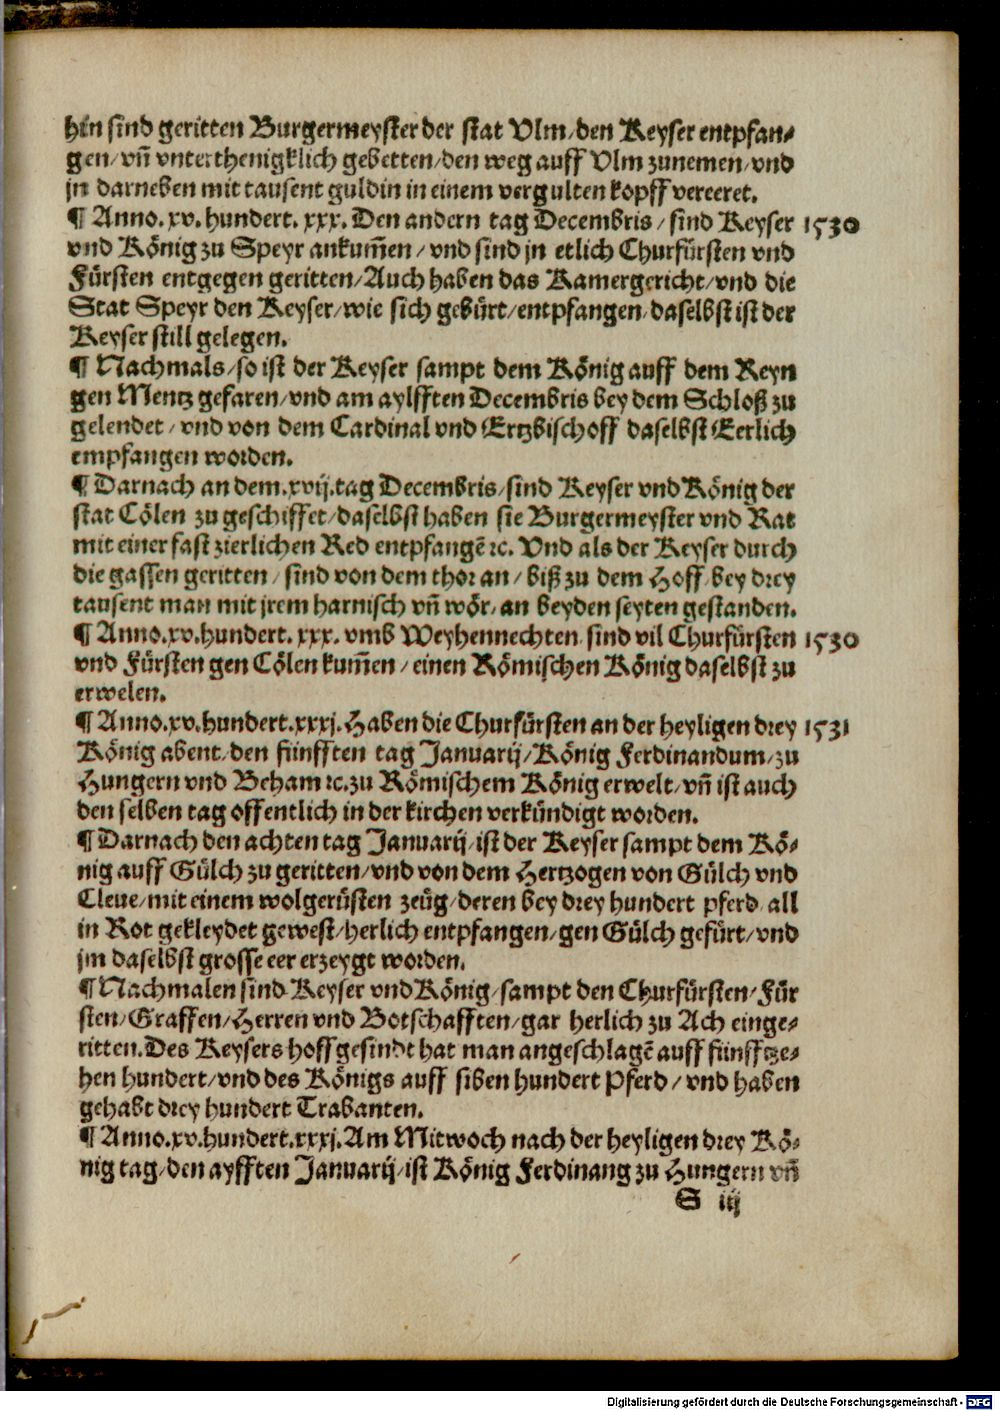 hin sind geritten Burgermeyster der stat Vlm/den Keyser entpfan-
gen/vn̄ vnterthenigklich gebetten/den weg auff Vlm zunemen/vnd
jn darneben mit tausent guldin in einem vergulten kopff vereeret.
¶ Anno.xv.hundert.xxx.Den andern tag Decembris/sind Keyser 1530
vnd König zu Speyr ankum̄en/vnd sind jn etlich Churfürsten vnd
Fürsten entgegen geritten/Auch haben das Kamergericht/vnd die
Stat Speyr den Keyser/wie sich gebürt/entpfangen/daselbst ist der
Keyser still gelegen.
¶ Nachmals/so ist der Keyser sampt dem König auff dem Reyn
gen Mentz gefaren/vnd am aylfften Decembris bey dem Schloß zu
gelendet/vnd von dem Cardinal vnd Ertzbischoff daselbst Eerlich
empfangen worden.
¶ Darnach an dem.xvij.tag Decembris/sind Keyser vnd König der
stat Cölen zu geschiffet/daselbst haben sie Burgermeyster vnd Rat
mit einer fast zierlichen Red entpfangē ꝛc. Vnd als der Keyser durch
die gassen geritten/sind von dem thor an/biß zu dem Hoff/bey drey
tausent man mit jrem harnisch vn̄ wör/an beyden seyten gestanden.
¶ Anno.xv.hundert.xxx. vmb Weyhennechten sind vil Churfürsten 1530
vnd Fürsten gen Cölen kum̄en/einen Römischen König daselbst zu
erwelen.
¶ Anno.xv.hundert.xxxj.Haben die Churfürsten an der heyligen drey 1531
König abent/den fünfften tag Januarij/König Ferdinandum/zu
Hungern vnd Beham ꝛc.zu Römischem König erwelt/vn̄ ist auch
den selben tag offentlich in der kirchen verkündigt worden.
¶ Darnach den achten tag Januarij/ist der Keyser sampt dem Kö-
nig auff Gülch zu geritten/vnd von dem Hertzogen von Gülch vnd
Cleue/mit einem wolgerüsten zeüg/deren bey drey hundert pferd all
in Rot gekleydet gewest/herlich entpfangen/gen Gülch gefürt/vnd
jm daselbst grosse eer erzeygt worden.
¶ Nachmalen sind Keyser vnd König/sampt den Churfürsten/Für
sten/Graffen/Herren vnd Botschafften/gar herlich zu Ach einge-
ritten.Des Keysers hoffgesindt hat man angeschlagē auff fünfftze-
hen hundert/vnd des Königs auff siben hundert Pferd/vnd haben
gehabt drey hundert Trabanten.
¶ Anno.xv.hundert.xxxj.Am Mitwoch nach der heyligen drey Kö-
nig tag/den ayfften Januarij/ist König Ferdinang zu Hungern vn̄
S iij
Digitalisierung gefördert durch die Deutsche Forschungsgemeinschaft - DFG